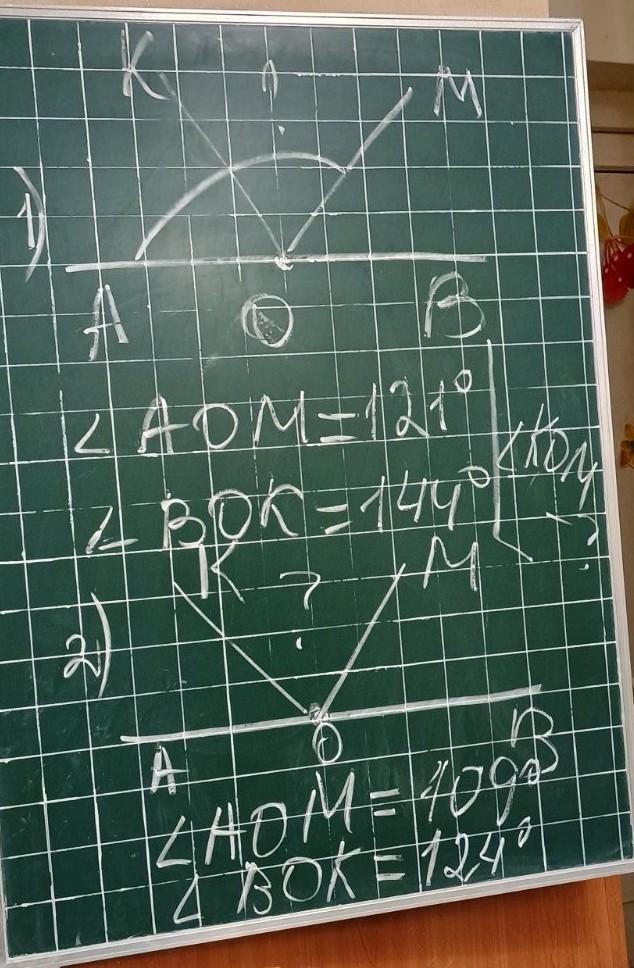 1)
K ? M
A O B
∠AOM=121°
∠BOK=144°
∠KOM
- ?
2)
K ? M
A O B
∠AOM=109°
∠BOK=124°